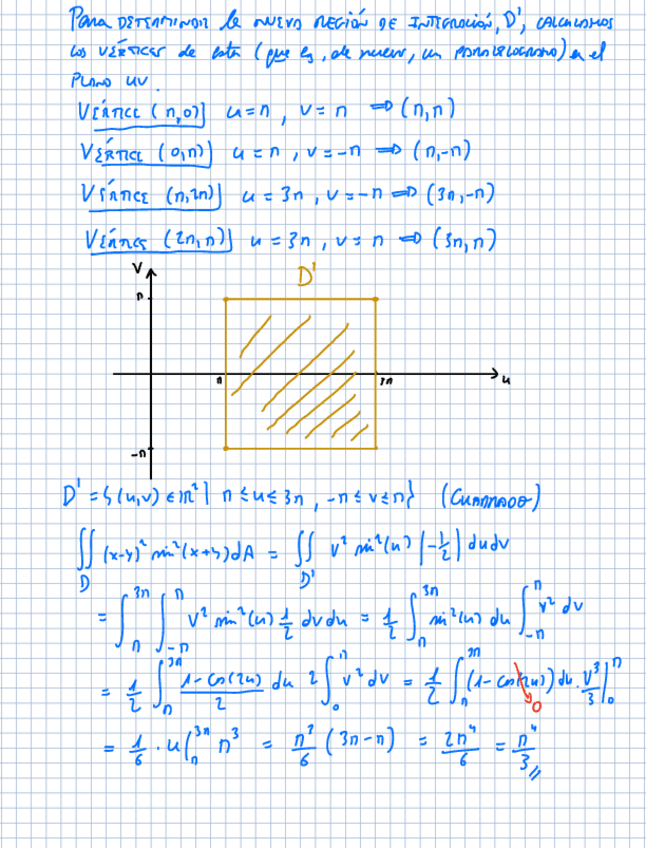 Para DETERMINAR la NUEVA REGIÓN DE INTEGRACIÓN, D', CALCULAMOS
los VÉRTICES de esta (que es, de nuevo, un PARALELOGRAMO) en el
PLANO UV.
VÉRTICE (π,0)] u=π, v=π ⇒ (π,π)
VÉRTICE (0,π)] u=π, v=-π ⇒ (π,-π)
VÉRTICE (π,2π)] u=3π, v=-π ⇒ (3π,-π)
VÉRTICE (2π,π)] u=3π, v=π ⇒ (3π,π)
V
D'
π
π
3π
u
-π
D' = {(u,v) ∈ ℝ² | π ≤ u ≤ 3π, -π ≤ v ≤ π} (CUADRADO)
∬_D (x-y)² sin²(x+y) dA = ∬_D' v² sin²(u) |-1/2| du dv
= ∫_π^3π ∫_-π^π v² sin²(u) 1/2 dv du = 1/2 ∫_π^3π sin²(u) du ∫_-π^π v² dv
= 1/2 ∫_π^3π (1-cos(2u))/2 du 2 ∫_0^π v² dv = 1/2 ∫_π^3π (1-cos(2u)) du · v³/3 |_0^π
0
= 1/6 · u|_π^3π π³ = π³/6 (3π-π) = 2π⁴/6 = π⁴/3 //